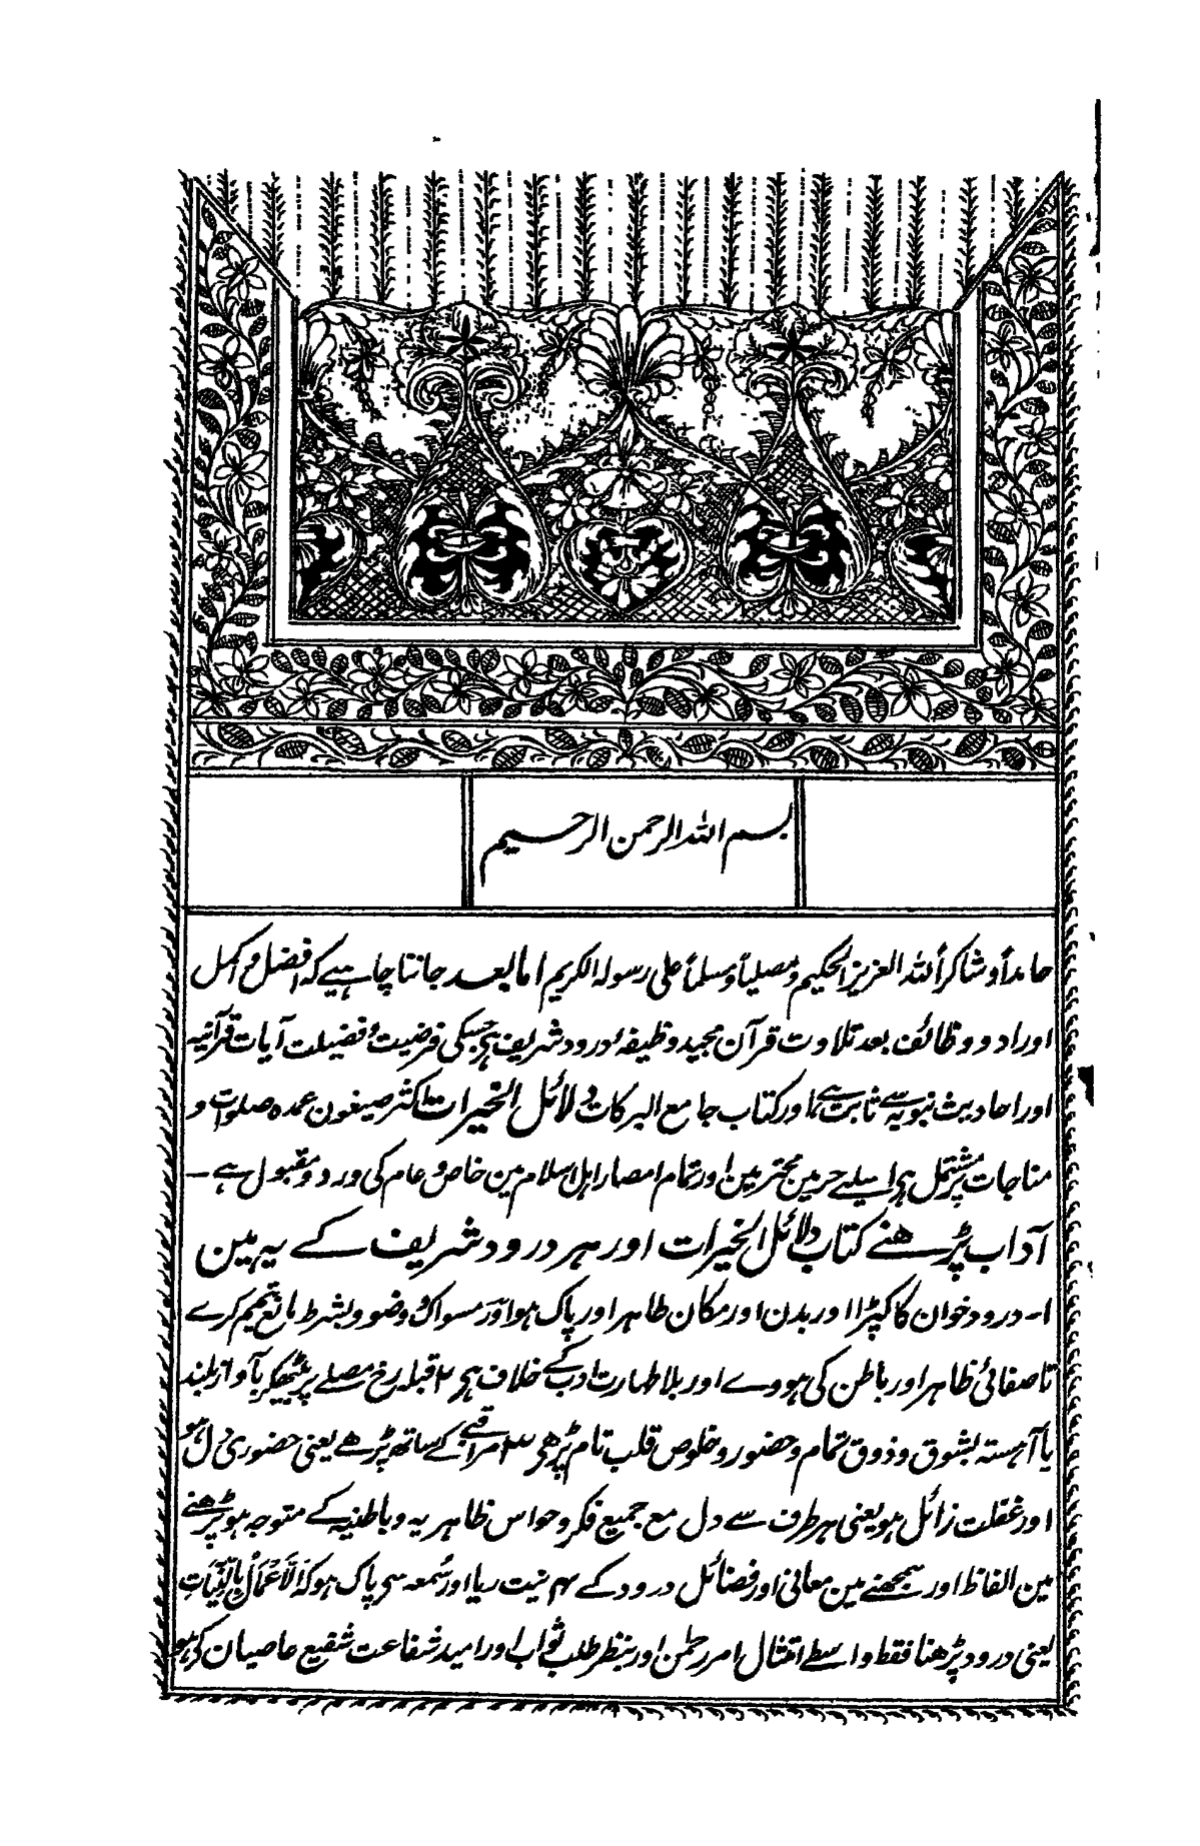 بسم اللہ الرحمن الرحیم
حامداً و شاکراً للہ العزیز الحکیم و مصلیاً و مسلماً علی رسولہ الکریم اما بعد جاننا چاہیے کہ افضل و اکمل
اوراد و وظائف بعد تلاوت قرآن مجید وظیفۂ درود شریف ہے جسکی فرضیت و فضیلت آیات قرآنیہ
اور احادیث نبویہ سے ثابت ہے اور کتاب جامع البرکات دلائل الخیرات اکثر صیغون عمدہ صلوات و
مناجات پر مشتمل ہے اسیلیے حرمین محترمین اور تمام امصار اہل اسلام مین خاص و عام کی ورد و مقبول ہے ۔
آداب پڑھنے کتاب دلائل الخیرات اور ہر درود شریف کے یہ ہین
۱۔ درود خوان کا کپڑا اور بدن اور مکان طاہر اور پاک ہو اور مسواک و وضو و بشرط مانع تیمم کرے
تا صفائی ظاہر اور باطن کی ہووے اور بلا طہارت ادب کے خلاف ہے ۲ قبلہ رخ مصلے پر بیٹھکر بآواز بلند
یا آہستہ بشوق و ذوق تمام و حضور و خلوص قلب تام پڑھے ۳ مراقبے کے ساتھ پڑھے یعنی حضوری دل ہو
اور غفلت زائل ہو یعنی ہر طرف سے دل مع جمیع فکر و حواس ظاہریہ و باطنیہ کے متوجہ ہو پڑھنے
مین الفاظ اور سمجھنے مین معانی اور فضائل درود کے ۴ نیت ریا اور سُمعہ سے پاک ہو کہ اَلاَعْمَالُ بِالنِّیَّاتِ
یعنی درود پڑھنا فقط واسطے امتثال امر رحمن اور بنظر طلب ثواب اور امید شفاعت شفیع عاصیان کے ہو